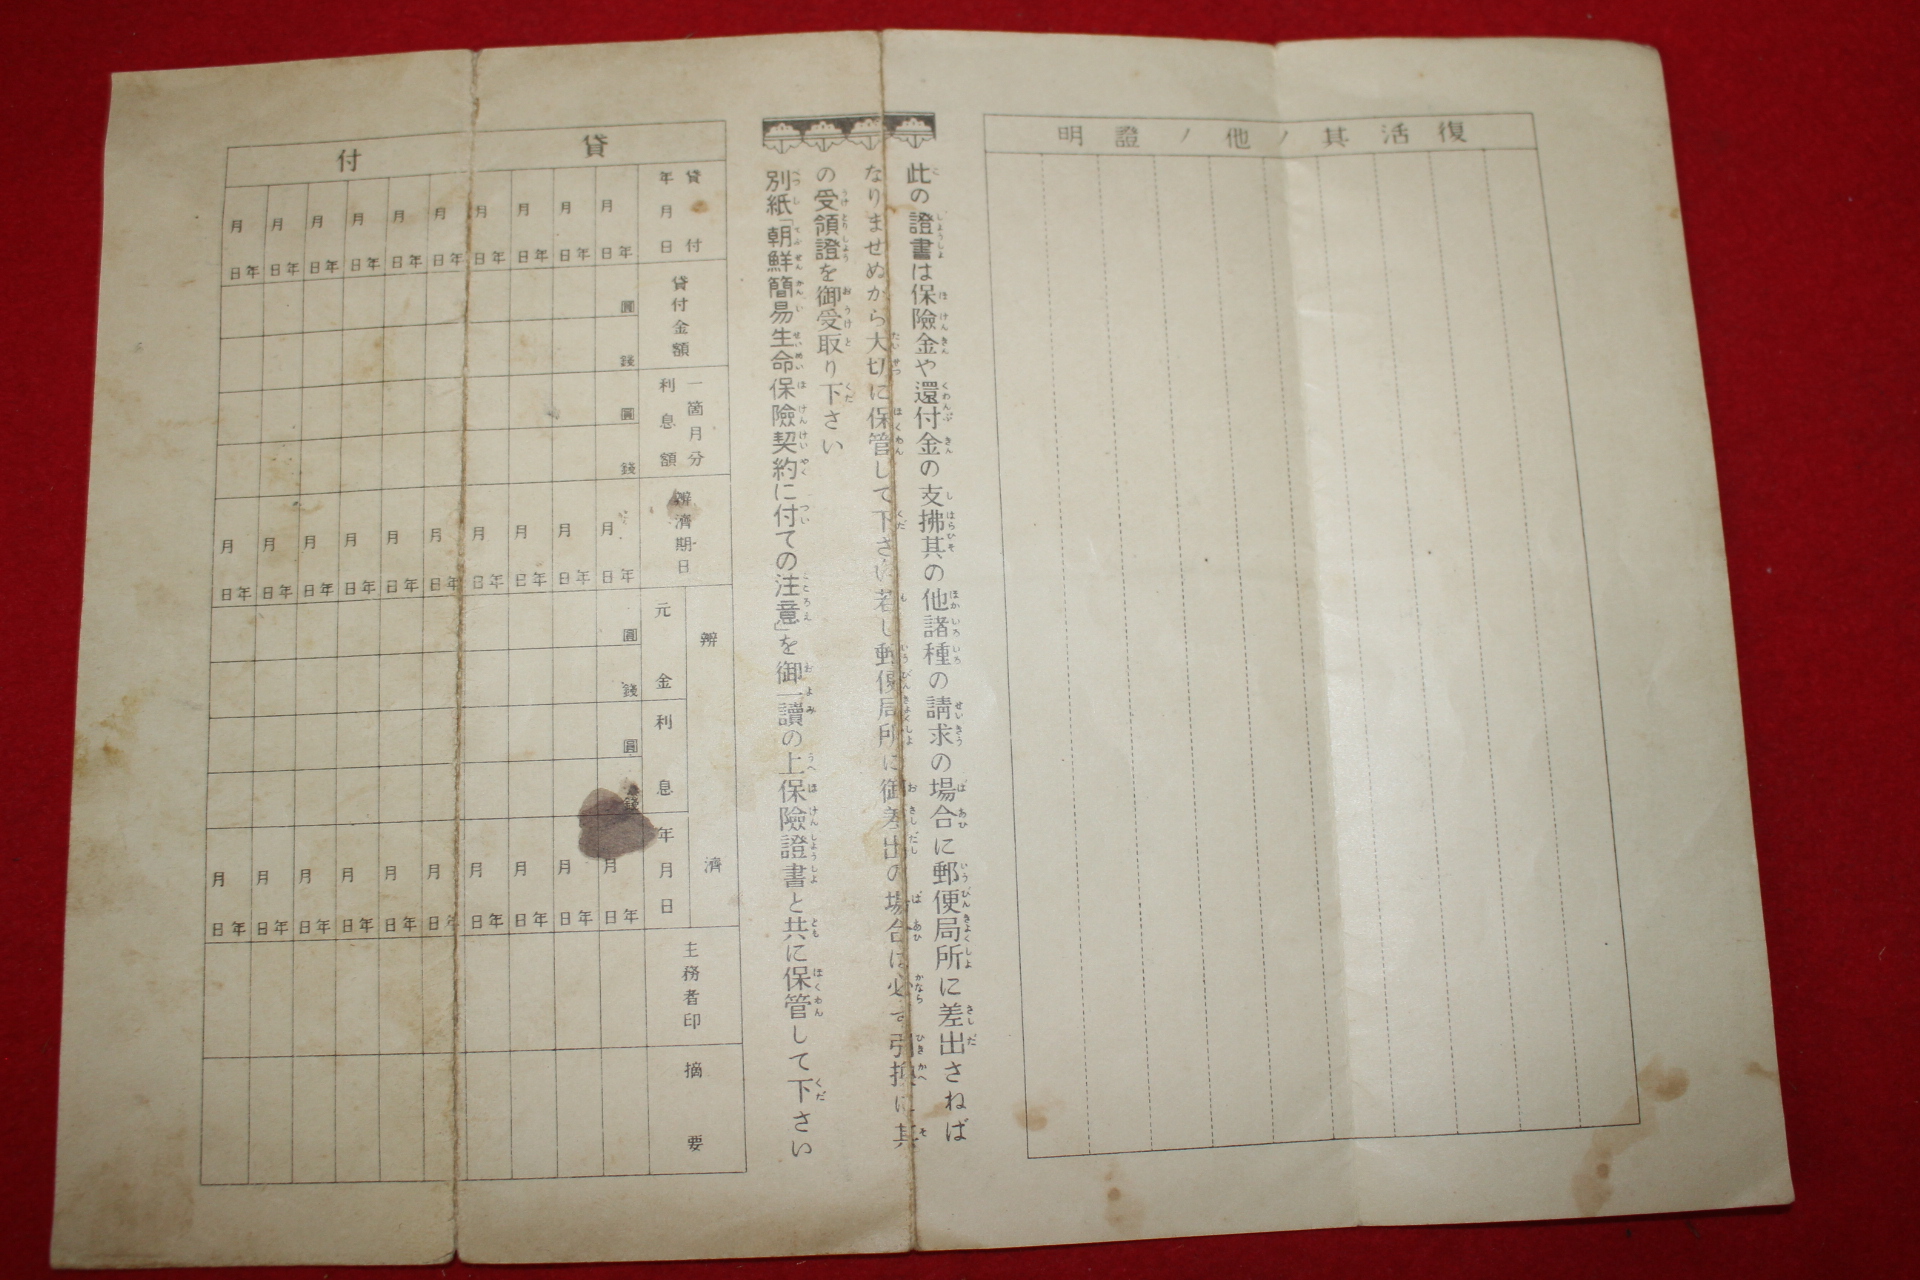 復活其ノ他ノ證明
此の證書は保險金や還付金の支拂其の他諸種の請求の場合に郵便局所に差出さねば
なりませぬから大切に保管して下さい若し郵便局所に御差出の場合は必ず引換に其
の受領證を御受取り下さい
別紙「朝鮮簡易生命保險契約に付ての注意」を御一讀の上保險證書と共に保管して下さい
貸付
貸付年月日
年月日 年月日 年月日 年月日 年月日 年月日 年月日 年月日 年月日 年月日
貸付金額
圓
錢
一箇月分利息額
圓
錢
辨濟期日
年月日 年月日 年月日 年月日 年月日 年月日 年月日 年月日 年月日 年月日
辨濟
元金
圓
錢
利息
圓
錢
年月日
年月日 年月日 年月日 年月日 年月日 年月日 年月日 年月日 年月日 年月日
主務者印
摘要